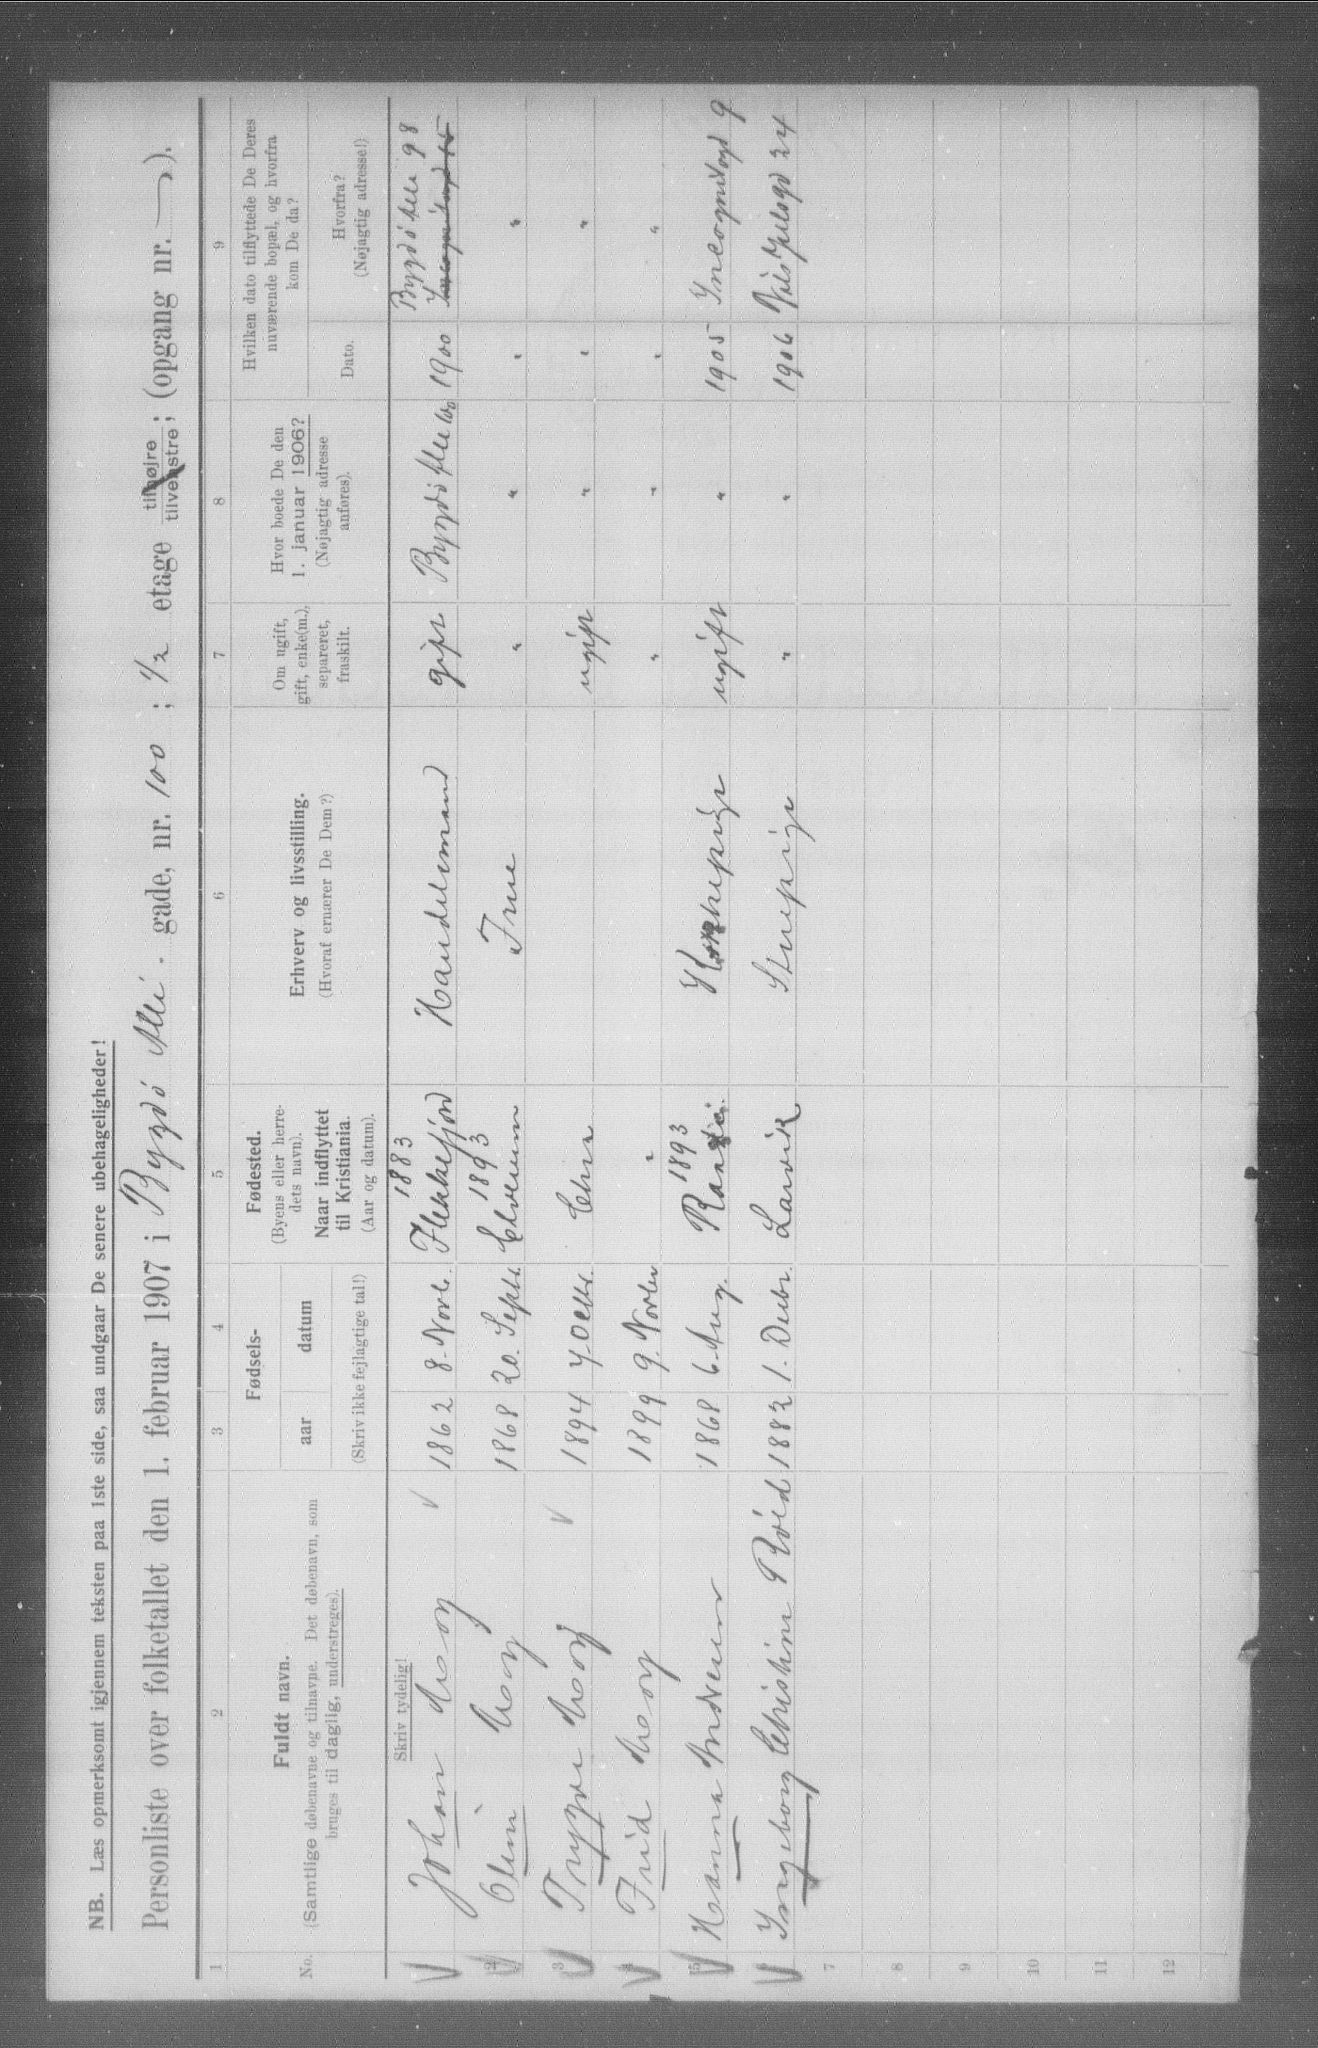 NB. Læs opmerksomt igjennem teksten paa 1ste side, saa undgaar De senere ubehageligheder!
Personliste over folketallet den 1. februar 1907 i Bygdö Allé. gade, nr. 100 ; 1/2 etage tilhøjre tilvenstre; (opgang nr. —).
1 2 3 4 5 6 7 8 9
No.
Fuldt navn.
(Samtlige døbenavne og tilnavne. Det døbenavn, som
bruges til daglig, understreges).
Fødsels-
aar datum
(Skriv ikke fejlagtige tal!)
Fødested.
(Byens eller herre-
dets navn).
Naar indflyttet
til Kristiania.
(Aar og datum).
Erhverv og livsstilling.
(Hvoraf ernærer De Dem?)
Om ugift,
gift, enke(m.),
separeret,
fraskilt.
Hvor boede De den
1. januar 1906?
(Nøjagtig adresse
anføres).
Hvilken dato tilflyttede De Deres
nuværende bopæl, og hvorfra
kom De da?
Dato.
Hvorfra?
(Nøjagtig adresse!)
Skriv tydelig!
Johan 1862 8. Novb. 1883 Flekkefjord Handelsmand gift Bygdö Alle 100 1900 Bygdö Alle 98
2 1868 20. Septb. 1893 Elverum Frue " " " "
3 Trygve 1894 7 Octb. Chra ugift " " "
4 1899 9. Novbr " " " " "
5 Hanna 1868 6. Aug. 1893 Kokkepige ugift " 1905 Incognitogd 9
Ingeborg Christine 1882 1. Debr. Larvik Stuepige " " 1906
7
8
9
10
11
12